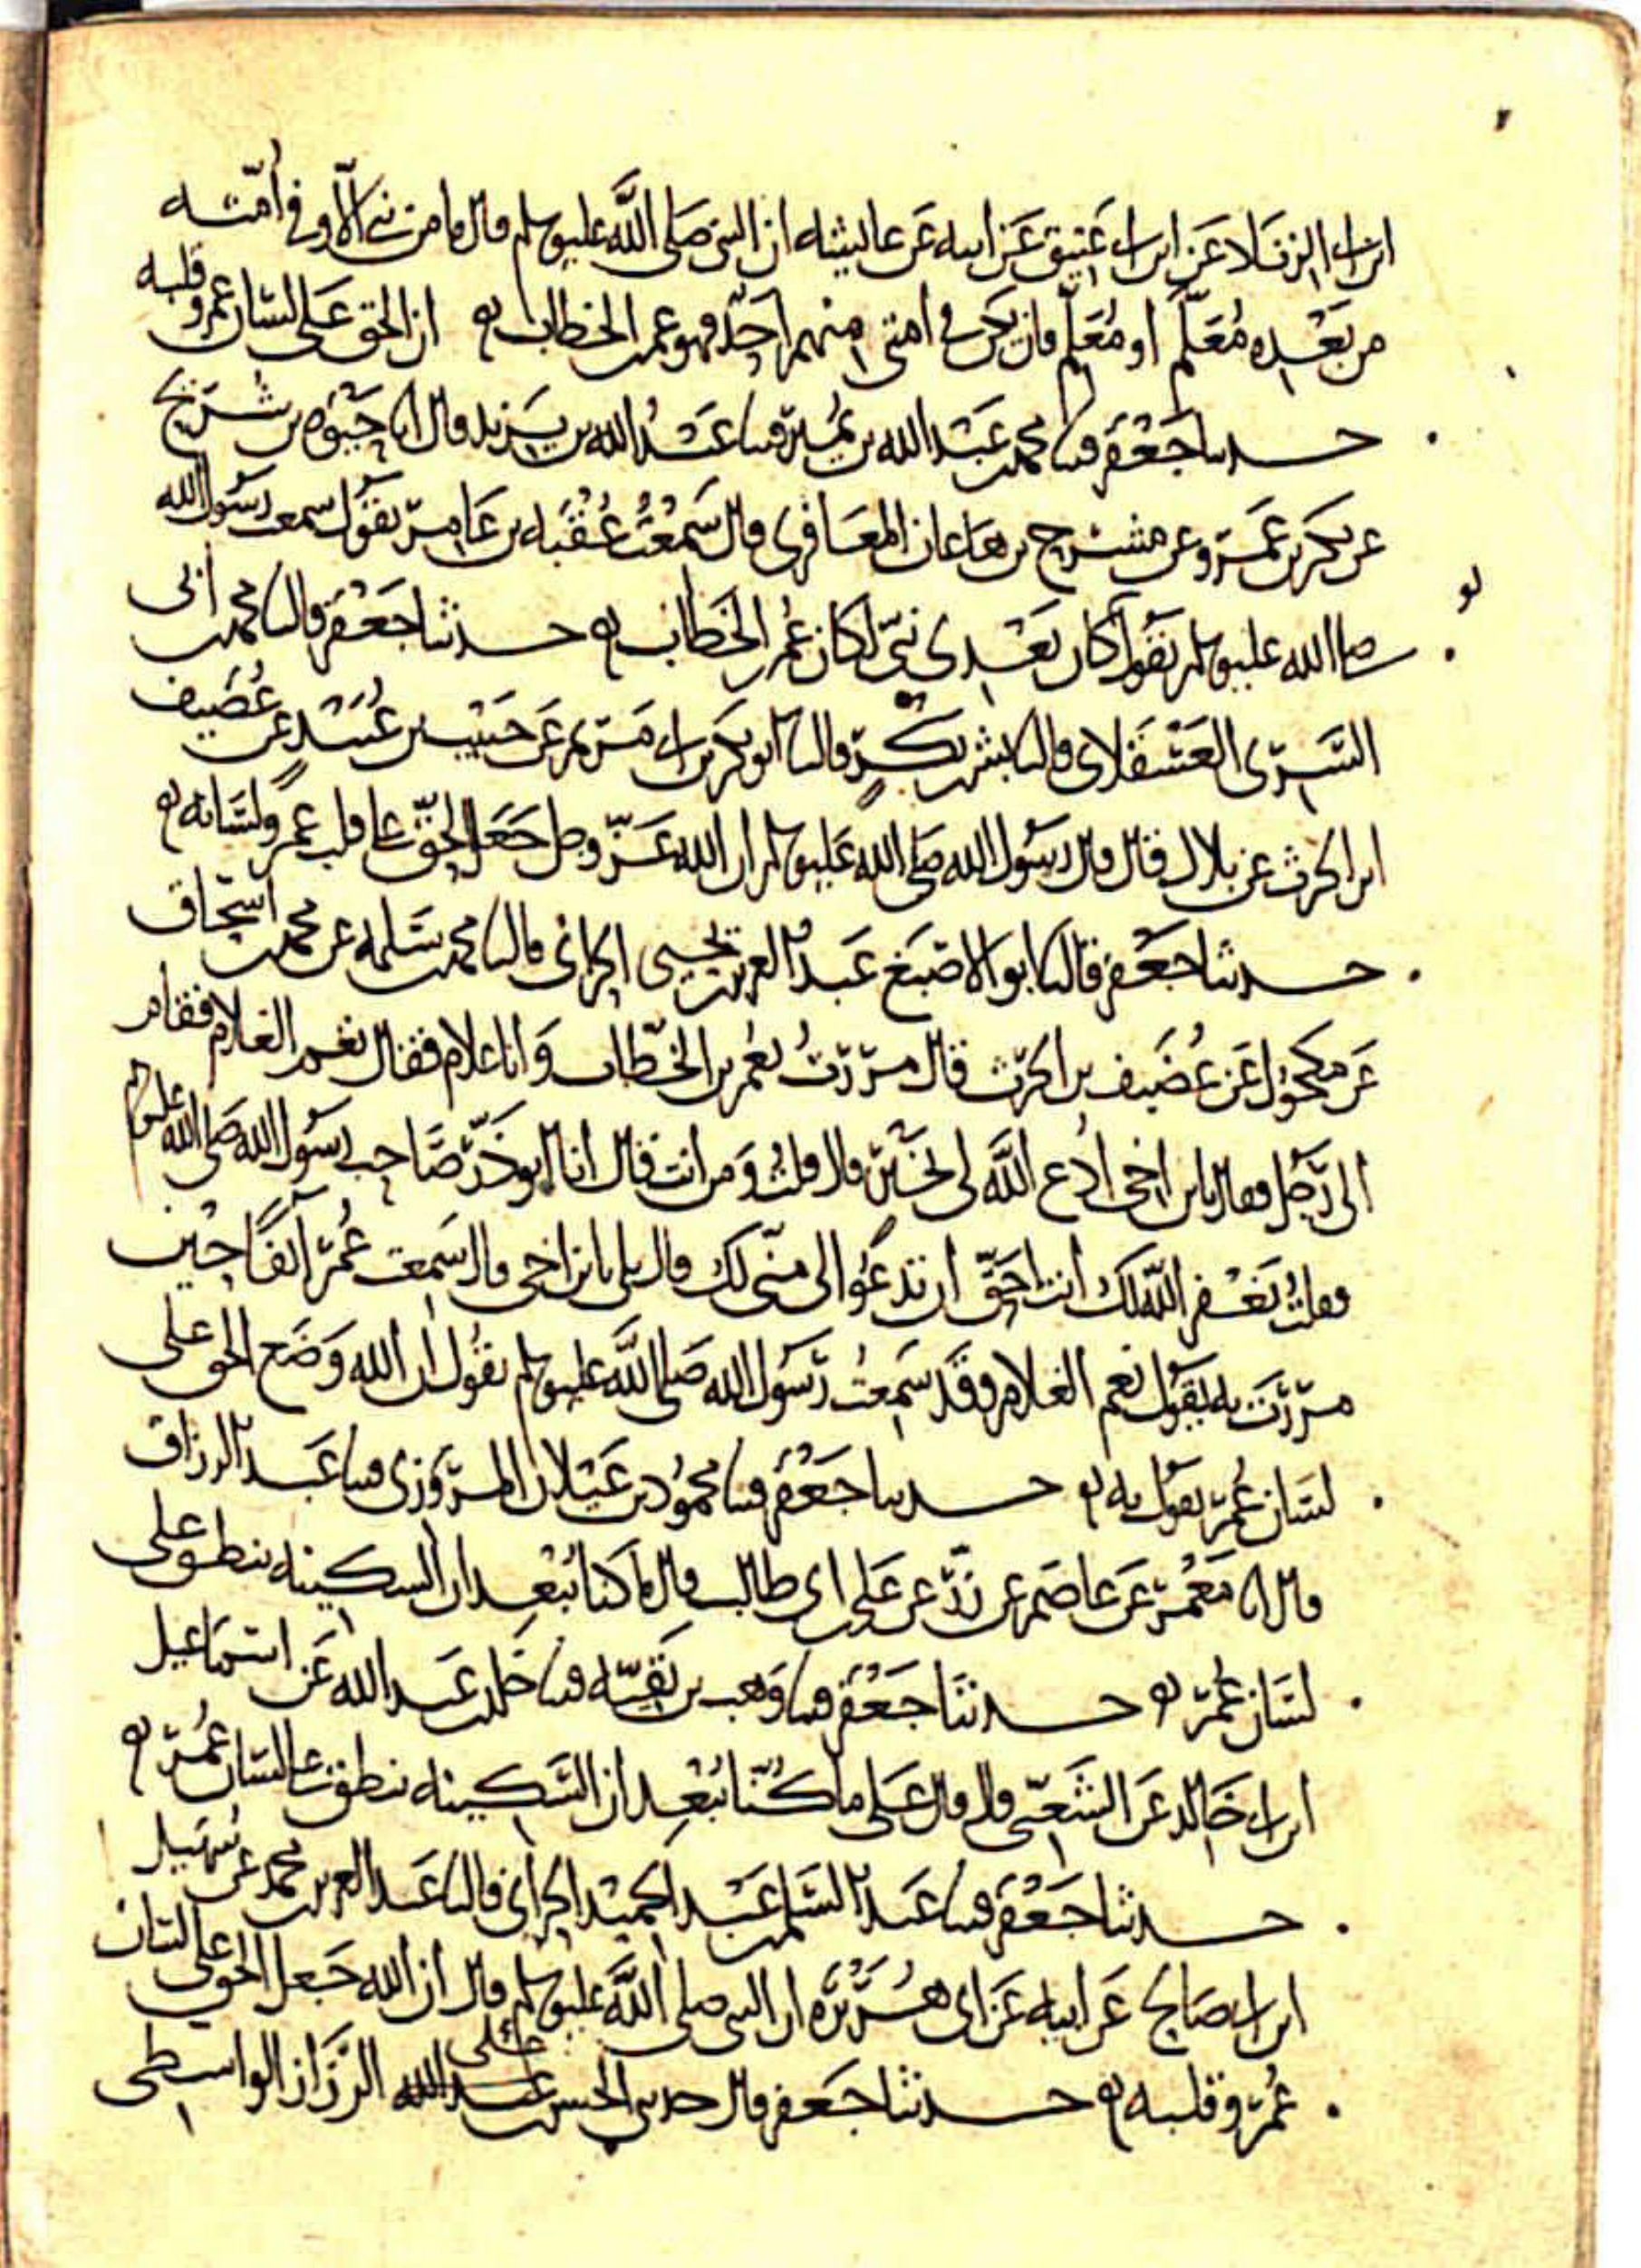 ابن ابي الزناد عن ابن ابي عتيق عن ابيه عن عائيشه ان النبي صلى الله عليه وسلم قال ما من نبي الا وفي أمته
من بعده مُعَلَّم أو مُعَلَّم فان يكن في امتي منهم احد فهو عمر بن الخطاب ان الحق على لسان عمر وقلبه
حدثنا جعفر قثنا محمد بن عبد الله بن نمير قثنا عبد الله بن يزيد قال انا حيوه بن شريح
عن بكر بن عمرو عن مشرح بن هاعان المعافري قال سمعت عقبه بن عامر يقول سمعت رسول الله
لو
صلى الله عليه وسلم يقول كان بعدي نبي لكان عمر بن الخطاب حدثنا جعفر قال نا محمد بن أبي
السري العسقلاني قال نا بشر بن بكر قال نا ابو بكر بن ابي مريم عن حبيب بن عبيد عن غضيف
ابن الحرث عن بلال قال قال رسول الله صلى الله عليه وسلم ان الله عز وجل جعل الحق على قلب عمر ولسانه
حدثنا جعفر قال نا ابو الاصبغ عبد العزيز بن يحيى الحراني قال نا محمد بن سلمه عن محمد بن اسحاق
عن مكحول عن غضيف بن الحرث قال مررت بعمر بن الخطاب وانا غلام فقال نعم الغلام فقام
الى رجل فقال يا ابن اخي ادع الله لي بخير قال قلت ومن انت قال انا ابو ذر صاحب رسول الله صلى الله عليه وسلم
فقلت يغفر الله لك انت احق ان تدعوا لي مني لك قال بلى يا ابن اخي قال سمعت عمر آنفا حين
مررت به يقول نعم الغلام وقد سمعت رسول الله صلى الله عليه وسلم يقول ان الله وضع الحق على
لسان عمر يقول به حدثنا جعفر قثنا محمود بن غيلان المروزي قثنا عبد الرزاق
قال انا معمر عن عاصم عن زر عن علي بن ابي طالب قال ما كنا نبعد ان السكينه تنطق على
لسان عمر حدثنا جعفر قثنا وهب بن بقيه قثنا خلد بن عبد الله عن اسماعيل
ابن ابي خالد عن الشعبي قال قال علي ما كنا نبعد ان السكينه تنطق على لسان عمر
حدثنا جعفر قثنا عبد السلم بن عبد الحميد الحراني قال نا عبد العزيز بن محمد عن سهيل
ابن ابي صالح عن ابيه عن ابي هريره ان النبي صلى الله عليه وسلم قال ان الله جعل الحق على لسان
عمر وقلبه حدثنا جعفر قال حدثني الحسن بن علي الرزاز الواسطي